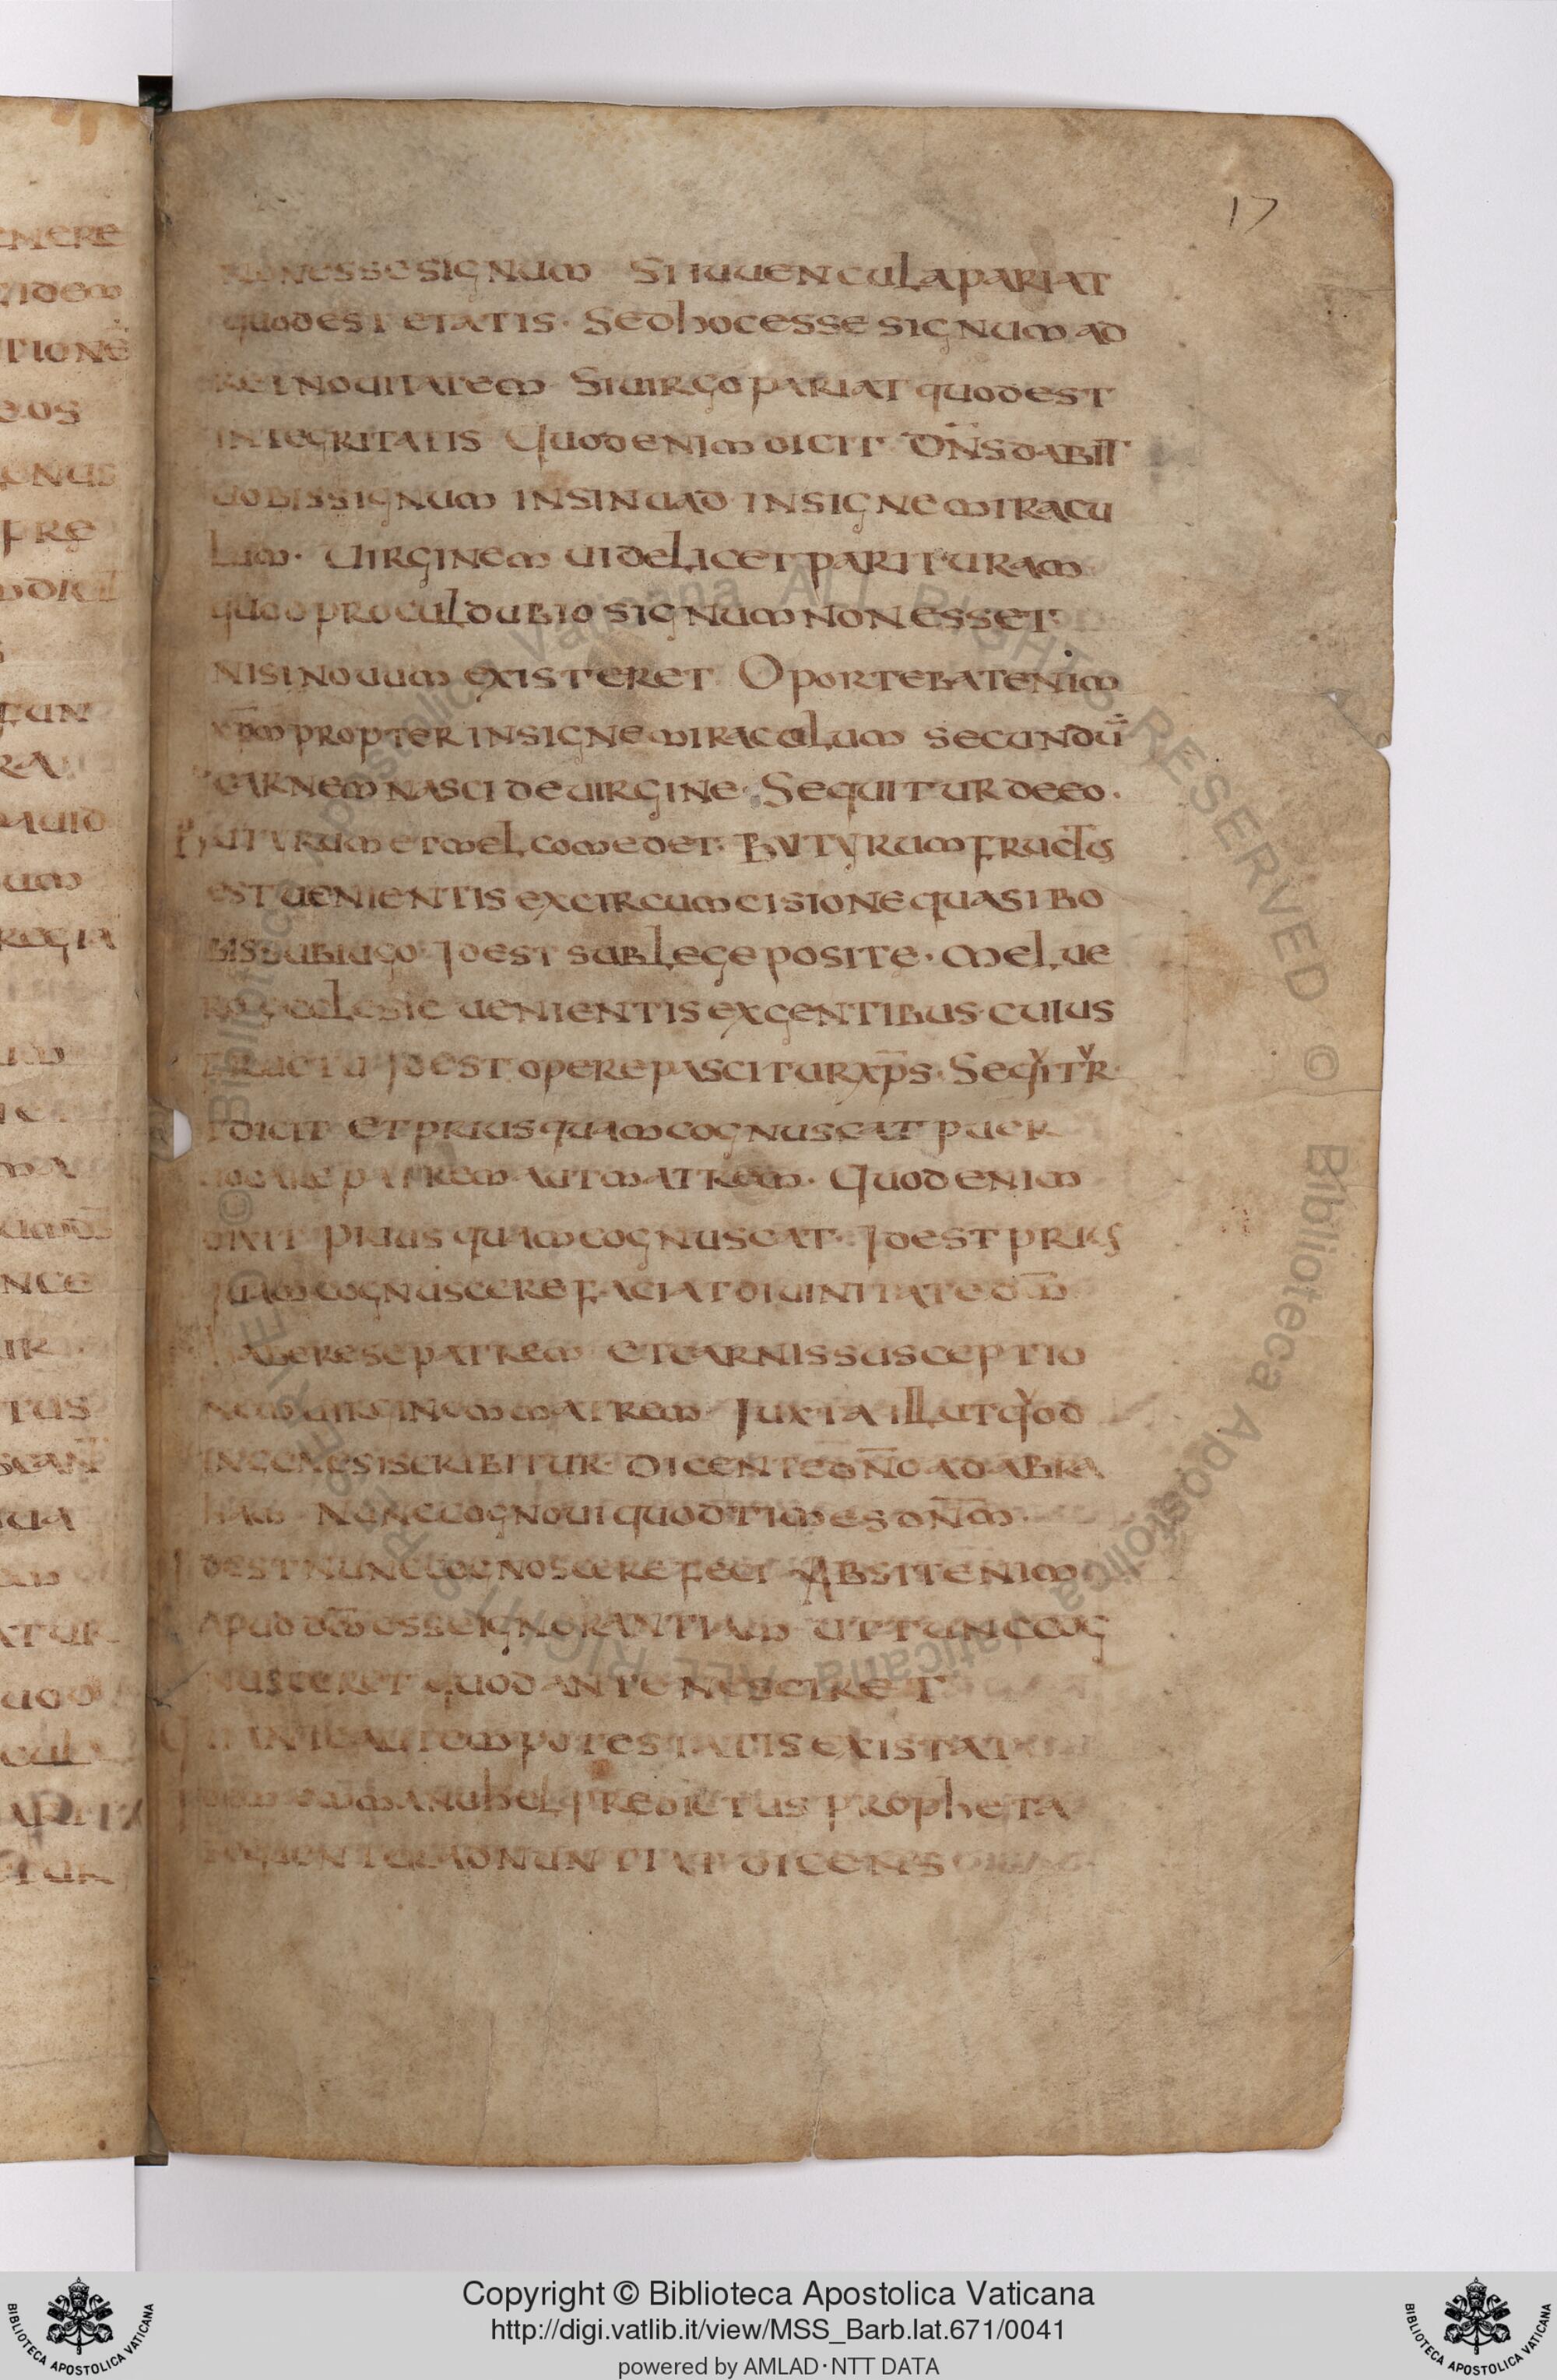 17
non esse signum Si iuuencula pariat
quod est etatis · Sed hoc esse signum ad
rei nouitatem Si uirgo pariat quod est
integritatis Quod enim dicit Dn̅s dabit
uobis signum insinuad insigne miracu
lum · Uirginem uidelicet parituram
quod procul dubio signum non esset
nisi nouum existeret Oportebat enim
xp̅m propter insigne miraculum secundu̅
carnem nasci de uirgine · Sequitur de eo ·
Butyrum et mel comedet · Butyrum fructus
est uenientis ex circumcisione quasi bo
bis sub iugo Idest sub lege posite · mel ue
ro ecclesie uenientis ex gentibus cuius
fructu Idest opere pascitur xp̅s · Sequitur
dicit et prius quam cognuscat puer
uocare patrem aut matrem · Quod enim
dixit prius quam cognuscat · Idest prius
quam cognuscere faciat diuinitate dm̅
habere se patrem et carnis susceptio
nem uirginem matrem Iuxta illut quod
in genesi scribitur · dicente dn̅o ad abra
ham Nunc cognoui quod times dn̅m ·
Idest nunc cognoscere feci Absit enim
apud dm̅ esse ignorantiam ut tunc cog
nusceret quod ante nesciret
autem potestatis existat
emmanuhel predictus propheta
adnuntiat dicens
Copyright © Biblioteca Apostolica Vaticana
http://digi.vatlib.it/view/MSS_Barb.lat.671/0041
powered by AMLAD·NTT DATA
BIBLIOTECA APOSTOLICA VATICANA
BIBLIOTECA APOSTOLICA VATICANA